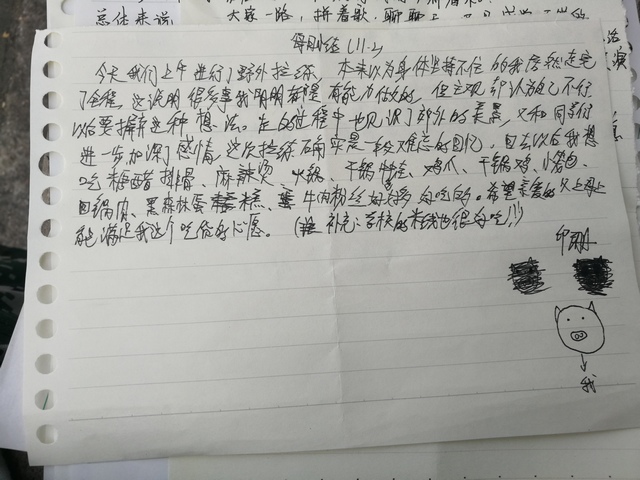 总体来说
每日小结(11.2)
今天我们上午进行了野外拉练，本来以为身体坚持不住的我居然走完
了全程，这说明很多事我明明都是有能力做的，但主观却认为自己不行
以后要摒弃这种想法。走的过程中也见识了郊外的美景，又和同学们
进一步加深了感情，这次拉练确实是一段难忘的回忆，回去以后我想
吃糖醋排骨、麻辣烫、火锅、干锅牛蛙、鸡爪、干锅鸡、小笼包、
回锅肉、黑森林蛋糕、牛肉粉丝好多好多好吃的。希望亲爱的父上母上
能满足我这个吃货的心愿。(补充：学校的米线也很好吃!!!)
我